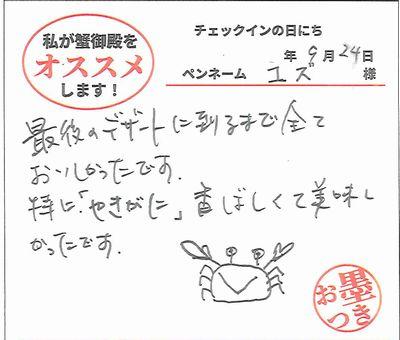 私が蟹御殿を
オススメ
します!
チェックインの日にち
年 9月 24日
ペンネーム ユズ 様
最後のデザートに到るまで全て
おいしかったです.
特に「やきがに」香ばしくて美味し
かったです.
お墨つき